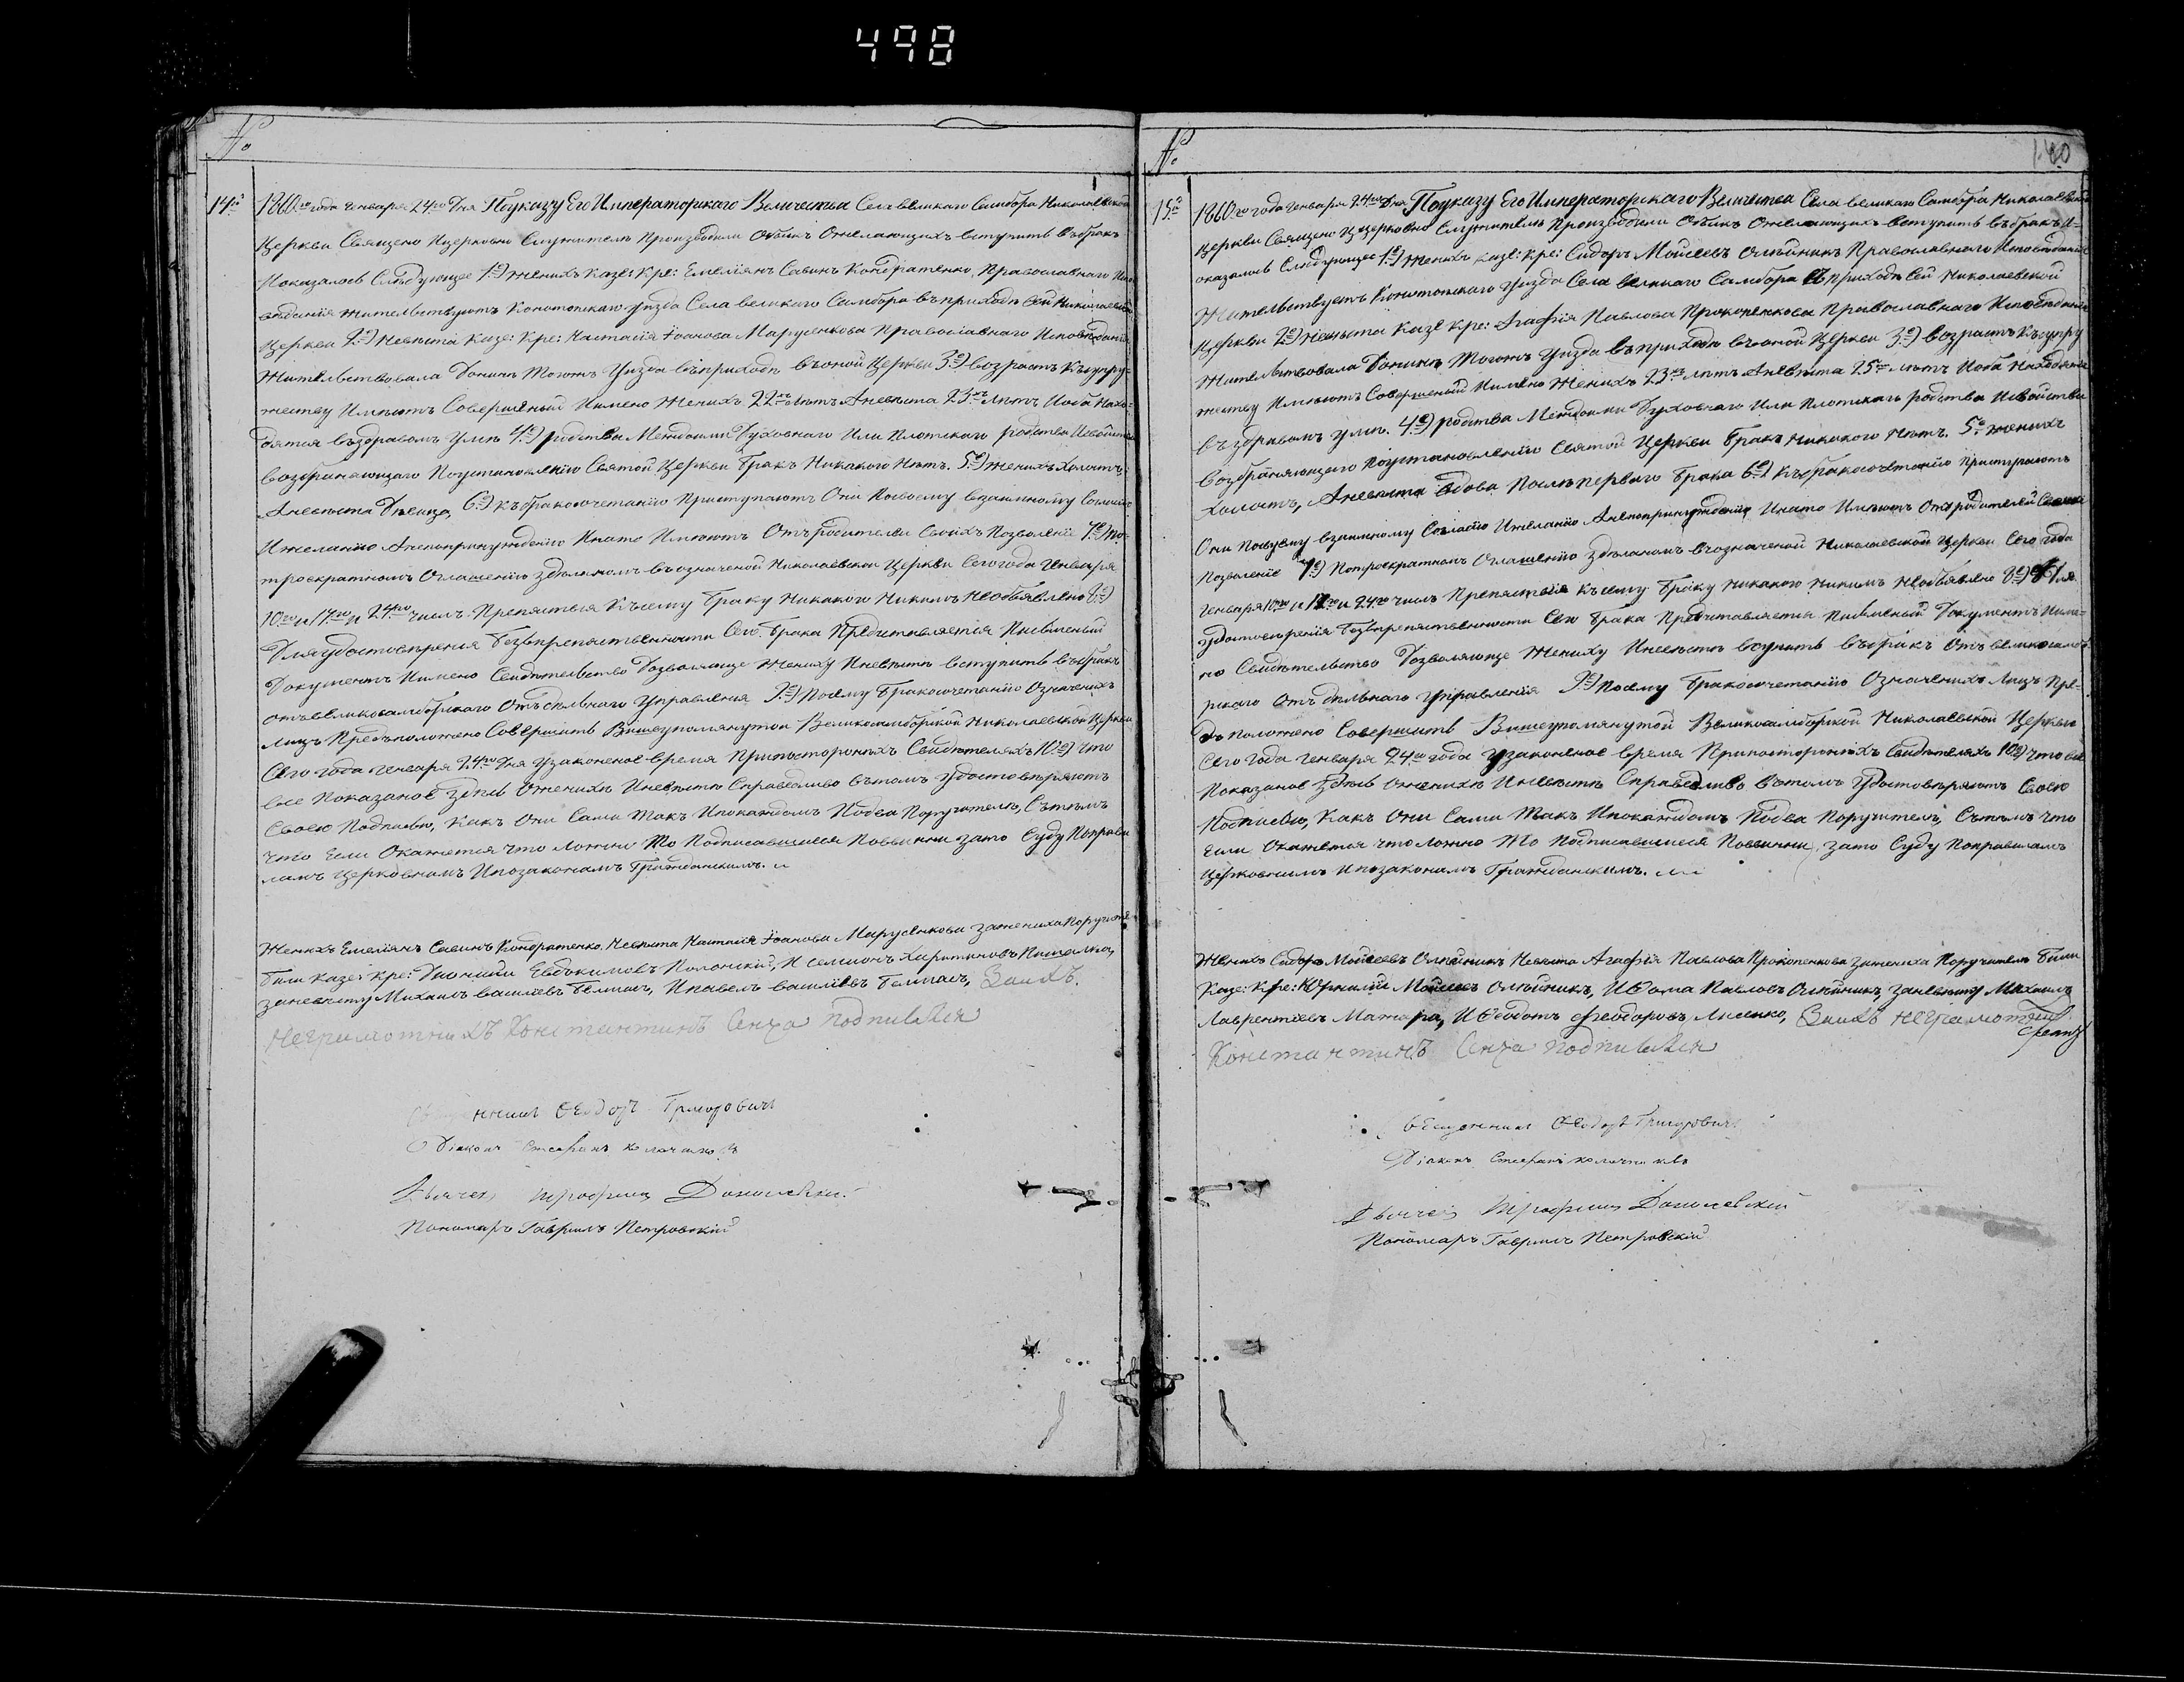 498
№
14й
1860го года Генваря 24го Дня Поуказу Его Императорскаго Величества Села великаго Самбора Николаевской
Церкви Священо Ицерковно Служители Производили Обыск Ожелающихъ вступить въбракъ
Ипоказалось Слѣдующее 1е) Женихъ казе: Кре: Емелiянъ Савинъ Кондратенко, Православнаго Испо-
веданiя жительствуетъ Конотопскаго уезда Села великаго Самбора въприходѣ сей Николаевской
Церкви 2е) Невѣста Казе: Кре: Настасiя Iоанова Марусенкова Православнаго Исповѣданiя
Жительствовала Донинѣ Тогожъ Уезда въприходѣ въоной Церкви 3е) возрастъ Късупру-
жеству Имѣютъ Совершеный Имено Женихъ 22хъ лѣтъ Аневѣста 23хъ лѣтъ Иоба Нахо-
дятся въздравомъ умѣ 4е) родства Междоими Духовнаго Или Плотскаго родства Исвойства
возбраняющаго Поустановленiю Святой Церкви Бракъ Никакого Нѣтъ. 5е) Женихъ Холостъ,
Аневѣста Девица, 6е) Къбракосочетанiю Приступаютъ Они Посвоему взаимному Согласiю
Ижеланiю Анепопринужденiю Инато Имѣютъ Отъродителей Своихъ Позволенiе 7е) По-
троекратномъ Оглашенiю здѣланомъ въозначеной Николаевской Церкви Сегогода Генваря
10го и 17го и 24го числъ Препятствiя Късему Браку Никакого Никимъ Необъявлено 8е)
Дляудостоверенiя Безвпрепятственности Сего Брака Представляется Писменый
Документъ Имено Свидѣтельство Дозволяюще Жениху Иневѣстѣ вступить въбракъ
отъвеликосамборскаго Отъдѣлнаго Управленiя 9е) Посему Бракосочетанiю Означенихъ
лицъ Предъположено Совершить Вишеупомянутой Великосамборской Николаевской Церкви
Сего года Генваря 24го Дня узаконеное время Припосторонихъ Свидѣтеляхъ 10е) что
все Показаное здѣсь Оженихѣ Иневѣстѣ Справедливо вътомъ удостовѣряютъ
Своею Подписью, Какъ Они Сами Такъ Ипокаждомъ Подва Поручителя, Сътѣмъ
что Если Окажется что Ложно То Подписавшиеся Повинни зато Суду Поправи
ламъ Церковнымъ Ипозаконамъ Гражданскимъ.
Женихъ Емелiянъ Савинъ Кондратенко, Невѣста Настасiя Iоанова Марусенкова зажениха Поручите
били Казе: Кре: Евдокимовъ Полонскiй, И Семионъ Харитоновъ
заневѣсту Михаилъ василiевъ Белишъ, Ипавелъ василiевъ Белишъ, Заихъ
Неграмотнихъ Константинъ Сенча подписался
Өеодоръ Григоровичъ
Дiаконъ Стефанъ
Дьячекъ Трофимъ
Пономаръ Гаврилъ Петровскiй
№
140
15й
1860го года Генваря 24го Дня Поуказу Его Императорскаго Величества Села великаго Самбора Николаевской
Церкви Священо Ицерковно Служители Производили Обыск Ожелающихъ вступить въбракъ И-
оказалось Слѣдующее 1е) Женихъ казе: Кре: Сидоръ Моисеевъ Олѣйникъ Православнаго Исповѣданiя
Жительствуетъ Конотопскаго Уезда Села великаго Самбора въ приходѣ Сей Николаевской
Церкви 2е) невѣста казе Кре: Агафiя Павлова Прокопенкова Православнаго Исповѣданiя
Жительствовала Донинѣ Тогожъ Уезда въприходѣ въоной Церкви 3е) возрастъ Късупру
жеству Имѣютъ Совершеный Имено Женихъ 23хъ лѣтъ Аневѣста 25ть лѣтъ Иоба Находятся
въздравомъ умѣ. 4е) родства Междоими Духовнаго Или Плотскаго родства Исвойства
возбраняющего Поустановленiю Святой Церкви Бракъ Никакого Нѣтъ. 5е Женихъ
холостъ, Аневѣста вдова Послѣ перваго Брака 6е) Къбракосочетанiю Приступаютъ
Они Посвоему взаимному Согласiю Ижеланiю Анепопринужденiю Инато Имѣютъ Отъродителей Своихъ
Позволенiе 7е) Потроекратномъ Оглашенiю здѣланомъ въозначеной Николаевской Церкви Сего года
Генваря 10го и 17го и 24го числъ Препятствiя Късему Браку Никакого Никимъ Необъявлено 8е) Для
удостоверенiя Безвпрепятственности Сего Брака Представляется Писменый Документъ Име-
но Свидѣтельство Дозволяюще Жениху Иневѣстѣ вступить въбракъ Отъ великосамбо-
рскаго Отъдѣльнаго Управленiя 9е) Посему Бракосочетанiю Означенихъ лицъ Пре-
дъположено Совершить Вишеупомянутой Великосамборской Николаевской Церкви
Сего Года Генваря 24го года узаконеное время Припосторонихъ Свидѣтеляхъ 10е) Что все
Показаное здѣсь Оженихѣ Иневѣстѣ Справедливо вътомъ Удостовѣряютъ Своею
Подписью, Какъ Они Сами Такъ Ипокаждомъ Подва Поручителя, Сътѣмъ что
Если Окажется что Ложно То Подписавшиеся Повинни, зато Суду Поправиламъ
Церковнимъ Ипозаконамъ Гражданскимъ.
Женихъ Сидоръ Моисеевъ Олѣйникъ Невѣста Агафiя Павлова Прокопенкова зажениха Поручители Били
Казе: Кре: Моисеевъ Олѣйникъ, И Өома Павловъ Олѣйникъ, заневѣсту Михаилъ
Лаврентiевъ И Өедотъ Феодоровъ Лисенко, Заихъ неграмотних
Константинъ Сенча подписался
Священникъ Өеодоръ Григоровичъ
Дiаконъ Стефанъ
Дьячекъ Трофимъ
Пономаръ Гаврилъ Петровскiй